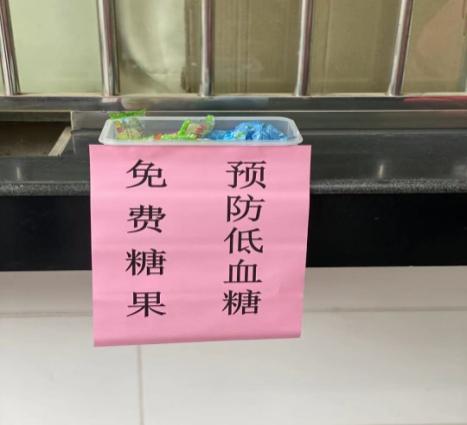 预防低血糖
免费糖果